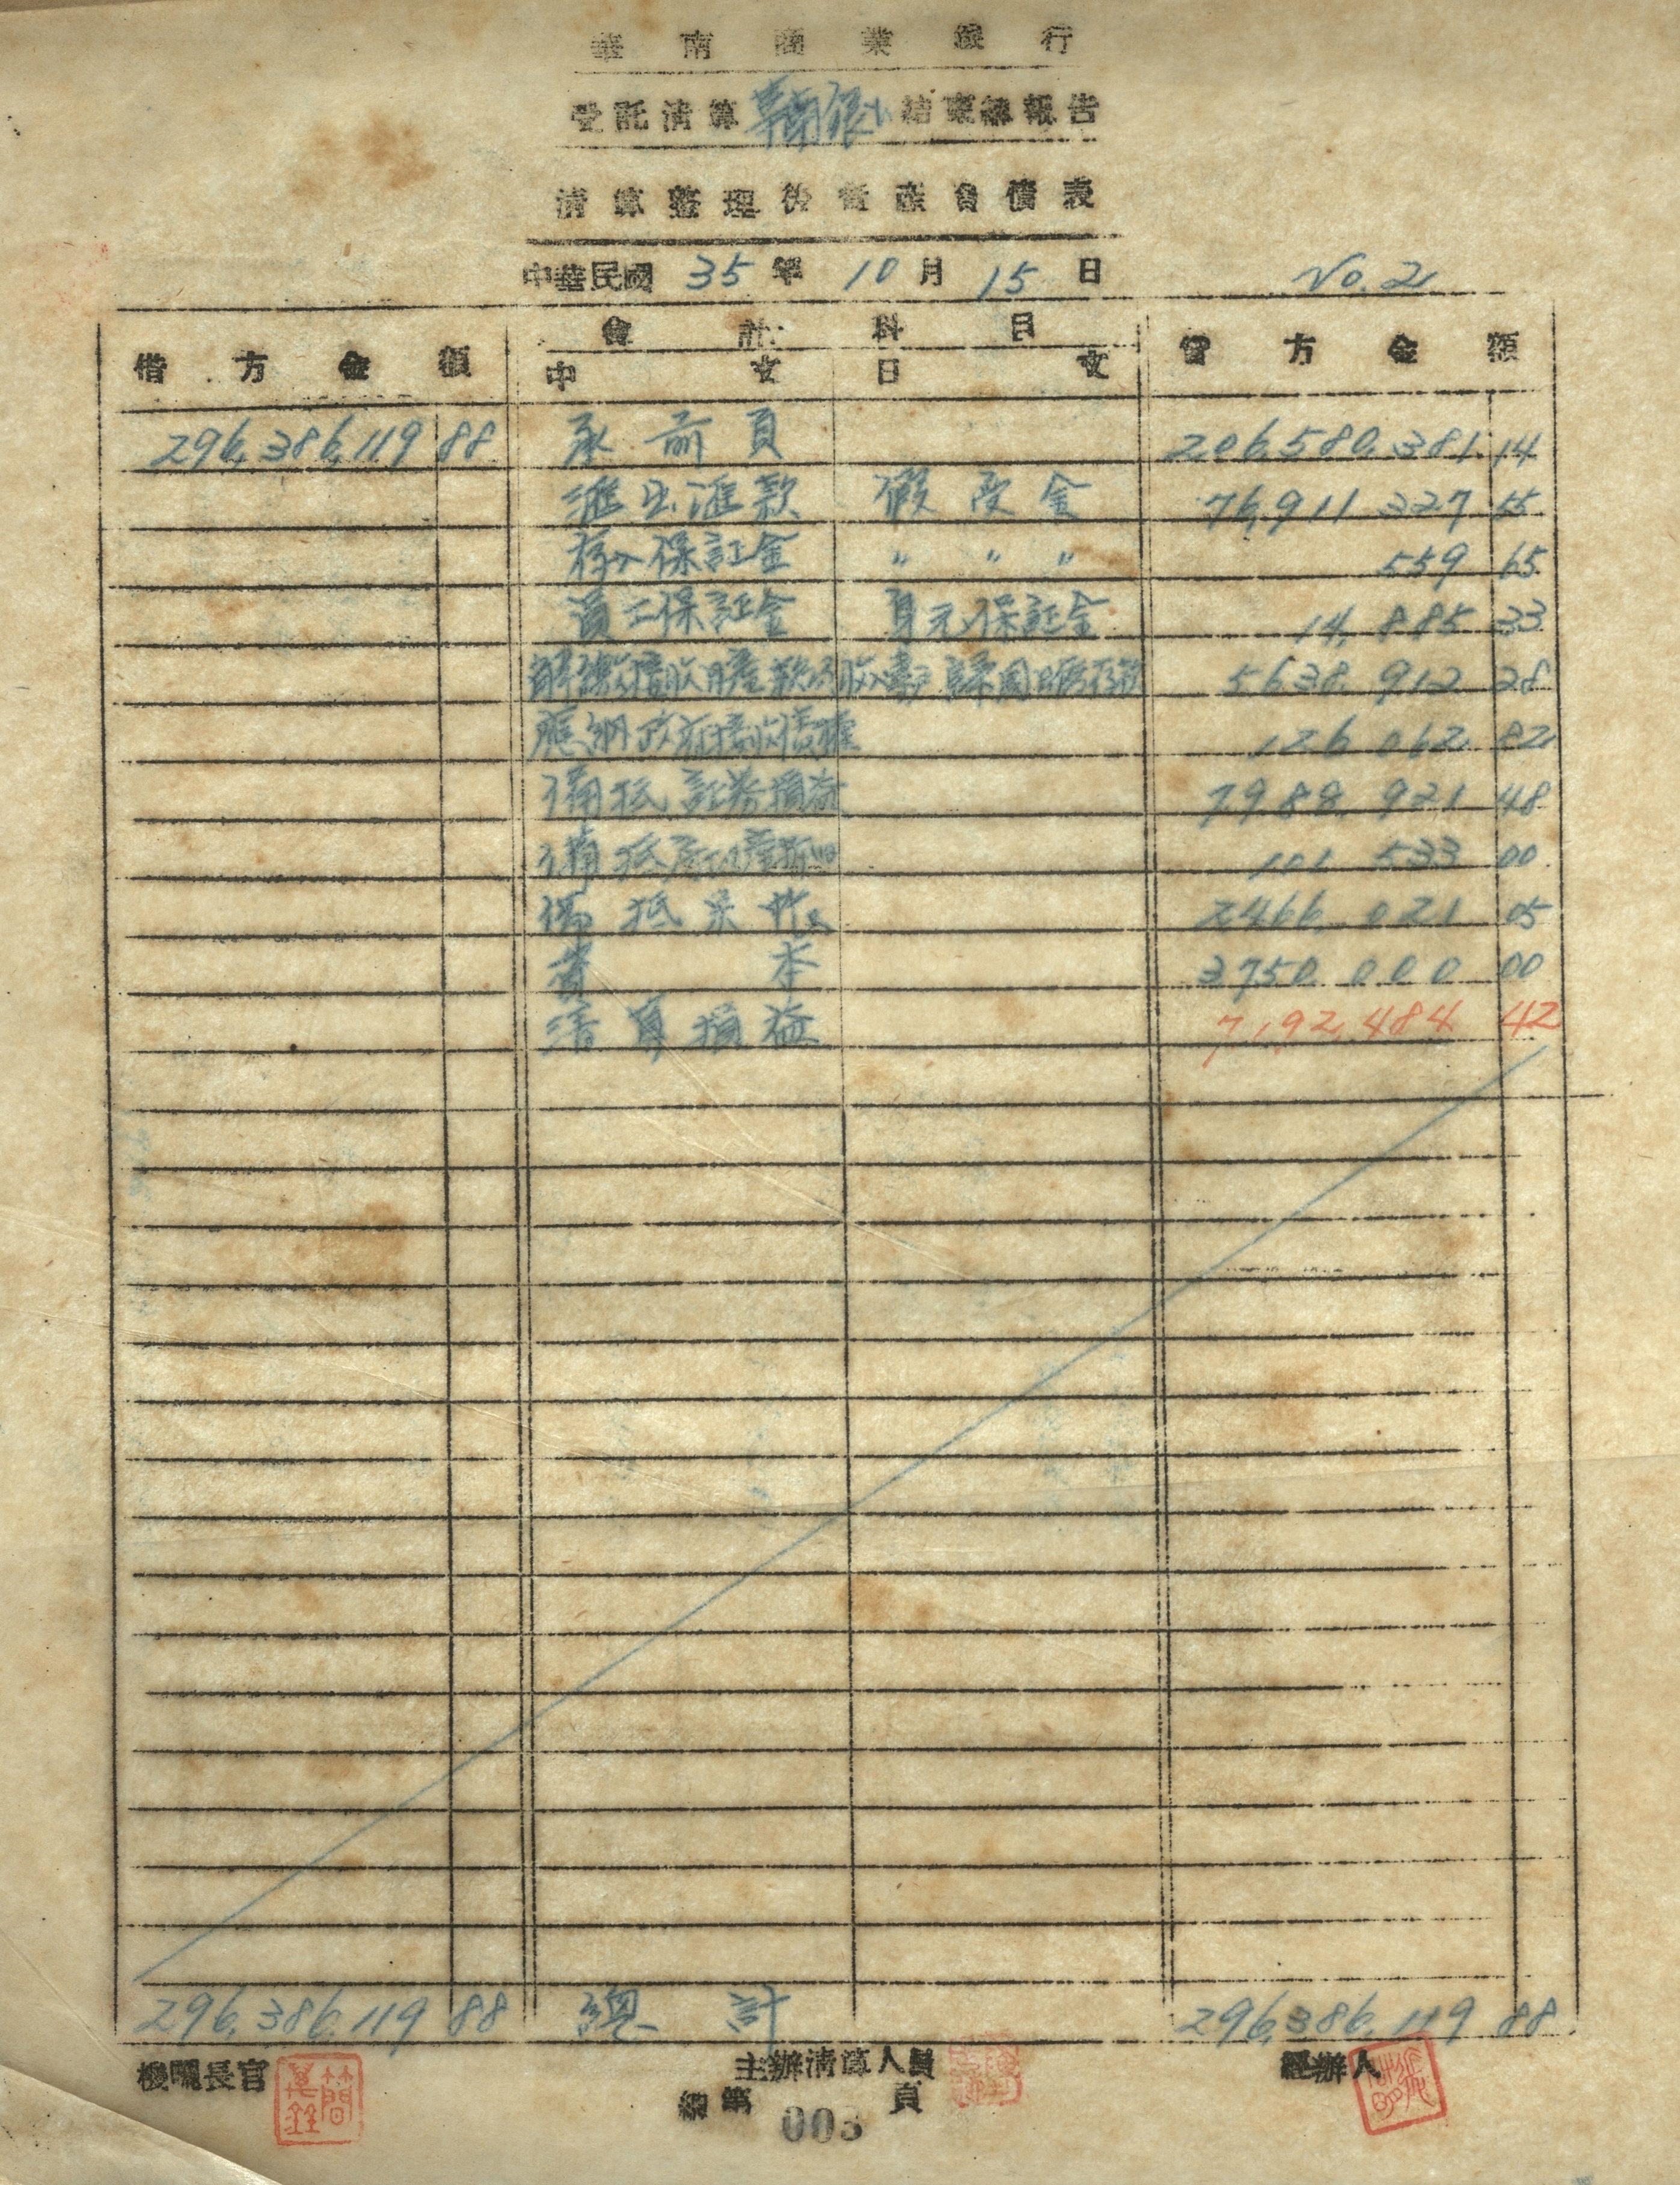 華南商業銀行
受託清算華南銀行結束總報告
清算整理後資產負債表
中華民國 35 年 10 月 15 日 No. 2
借方金額 會計科目 貸方金額
中文 日文
296,386,119 88 承前頁 206,580,381 14
滙出滙款 假受金 76,911 327 55
存入保証金 〃 〃 〃 559 65
員工保証金 身元保証金 14,885 33
5638 912 28
應納政府接收債權 126 062 82
備抵証券損益 7988 921 48
備抵房地產折旧 101 533 00
備抵呆帳 2466 021 05
資本 3750 000 00
清算損益 7,192,484 42
296,386,119 88 總計 296,386,119 88
機關長官 主辦清算人員 經辦人
簡萬銓
總第 003 頁